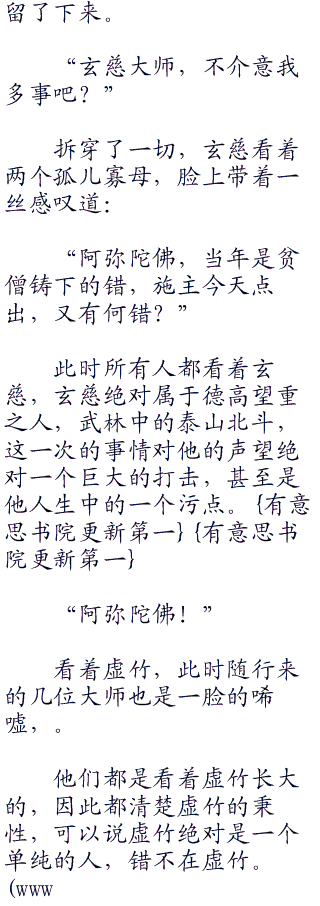 留了下来。
“玄慈大师，不介意我
多事吧？”
拆穿了一切，玄慈看着
两个孤儿寡母，脸上带着一
丝感叹道：
“阿弥陀佛，当年是贫
僧铸下的错，施主今天点
出，又有何错？”
此时所有人都看着玄
慈，玄慈绝对属于德高望重
之人，武林中的泰山北斗，
这一次的事情对他的声望绝
对一个巨大的打击，甚至是
他人生中的一个污点。{有意
思书院更新第一}{有意思书
院更新第一}
“阿弥陀佛！”
看着虚竹，此时随行来
的几位大师也是一脸的唏
嘘，。
他们都是看着虚竹长大
的，因此都清楚虚竹的秉
性，可以说虚竹绝对是一个
单纯的人，错不在虚竹。
(www